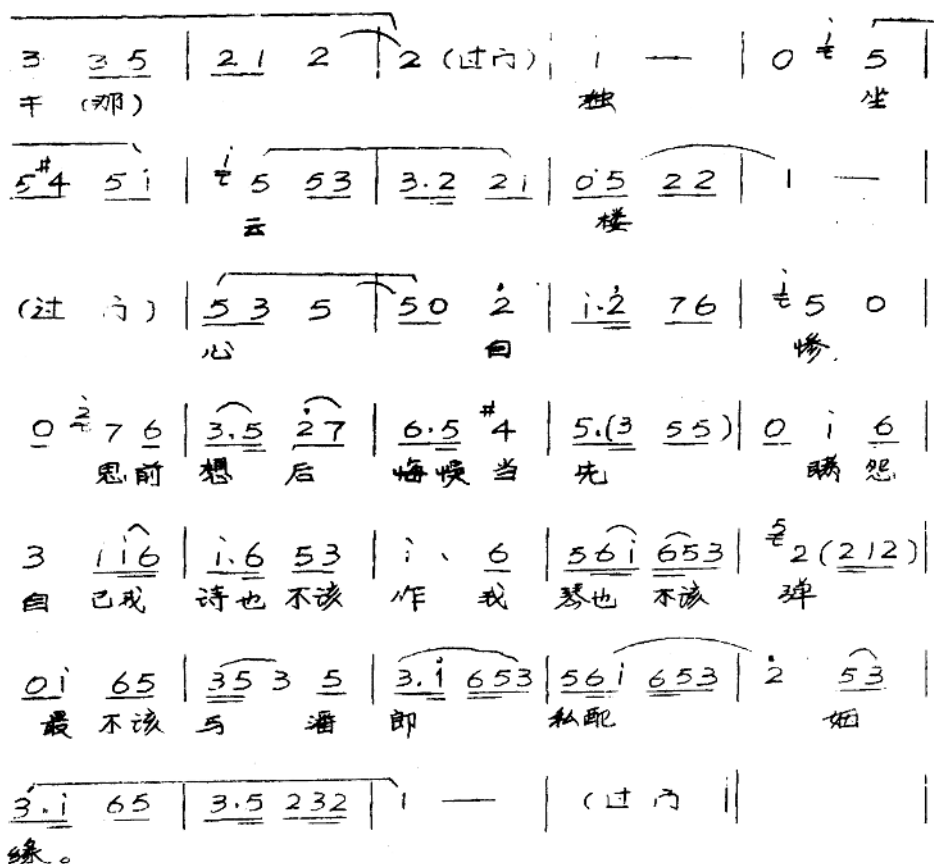 3 3 5 | 2 1 2 | 2 (过门) | i — | 0 i 5 |
干 (那) 独 坐
5 #4 5 i | i 5 5 3 | 3.2 2 i | 0 5 2 2 | 1 — |
云 楼
(过 门) | 5 3 5 | 5 0 2̇ | i.2̇ 7 6 | i 5 0 |
心 自 惨.
0 2̇ 7 6 | 3.5 2̇ 7 | 6.5 #4 | 5.(3 5 5) | 0 i 6 |
思 前 想 后 悔 恨 当 先 瞒 怨
3 i i 6 | i.6 5 3 | i 、 6 | 5 6 i 6 5 3 | 5 2 (2 1 2) |
自 己 我 诗 也 不 该 作 我 琴 也 不 该 弹
0 i 6 5 | 3 5 3 5 | 3.i 6 5 3 | 5 6 i 6 5 3 | 2̇ 5 3 |
最 不 该 与 潘 郎 私 配 姻
3.i 6 5 | 3.5 2 3 2 | 1 — | (过 门 | |
缘。